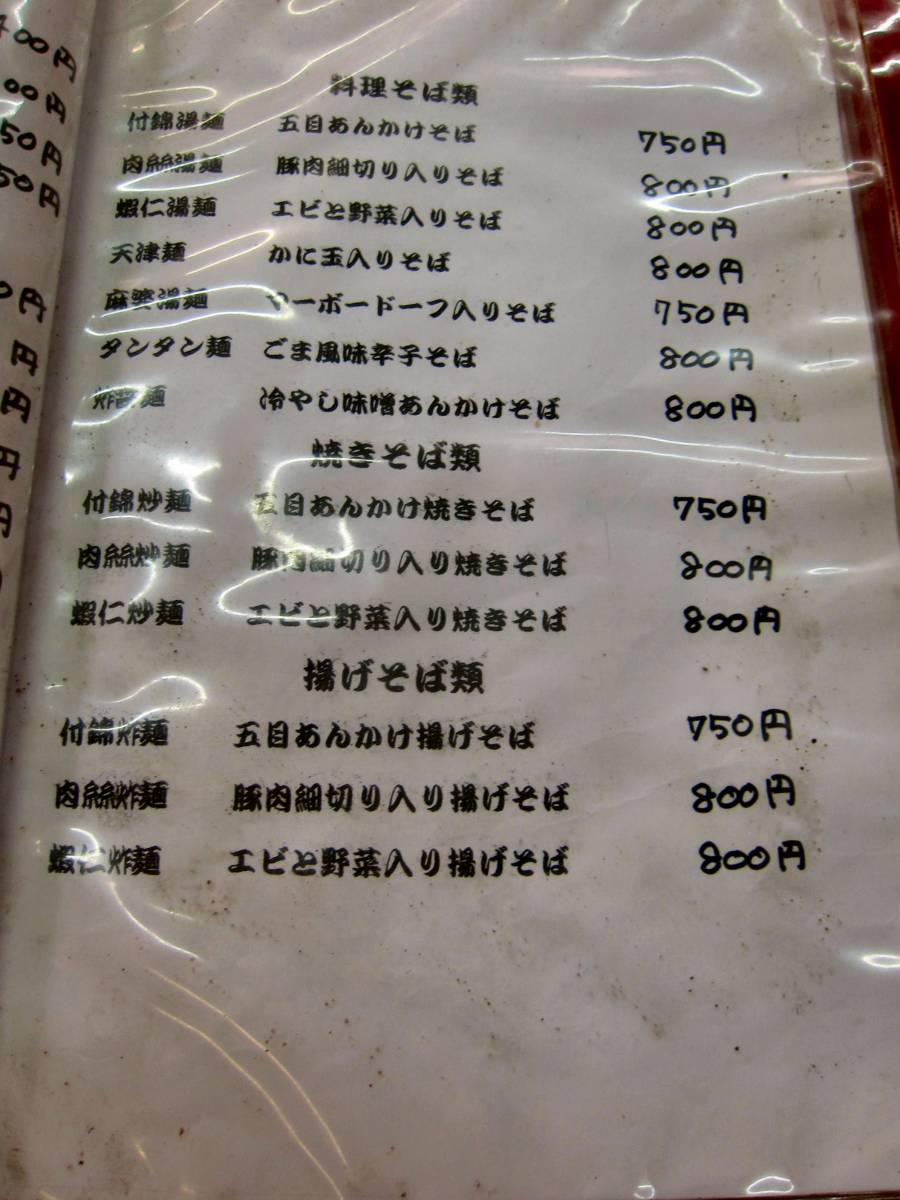 400円
00円
50円
50円
0円
円
円
円
円
料理そば類
付錦湯麺 五目あんかけそば 750円
肉絲湯麺 豚肉細切り入りそば 800円
蝦仁湯麺 エビと野菜入りそば 800円
天津麺 かに玉入りそば 800円
麻婆湯麺 マーボードーフ入りそば 750円
タンタン麺 ごま風味辛子そば 800円
炸醤麺 冷やし味噌あんかけそば 800円
焼きそば類
付錦炒麺 五目あんかけ焼きそば 750円
肉絲炒麺 豚肉細切り入り焼きそば 800円
蝦仁炒麺 エビと野菜入り焼きそば 800円
揚げそば類
付錦炸麺 五目あんかけ揚げそば 750円
肉絲炸麺 豚肉細切り入り揚げそば 800円
蝦仁炸麺 エビと野菜入り揚げそば 800円